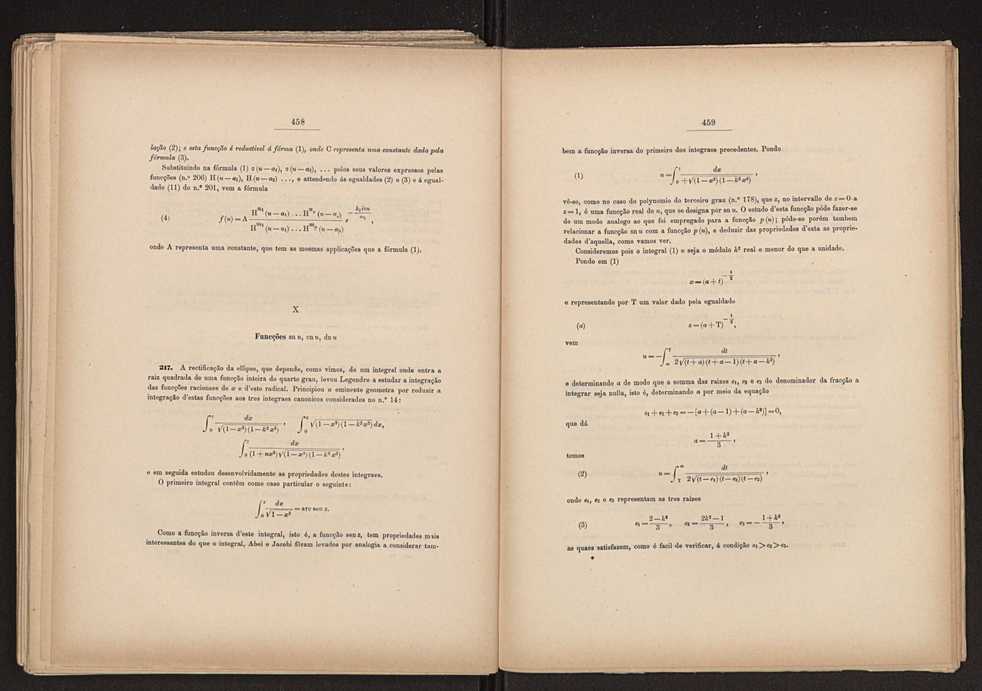 458
lação (2); e esta funcção é reductivel á fórma (1), onde C representa uma constante dada pela
fórmula (3).
Substituindo na fórmula (1) σ(u—a₁), σ(u—a₂), ... pelos seus valores expressos pelas
funcções (n.º 206) H(u—a₁), H(u—a₂) ..., e attendendo ás egualdades (2) e (3) e á egual-
dade (11) do n.º 201, vem a fórmula
(4) f(u) = A
onde A representa uma constante, que tem as mesmas applicações que a fórmula (1).
X
Funcções sn u, cn u, dn u
217. A rectificação da ellipse, que depende, como vimos, de um integral onde entra a
raiz quadrada de uma funcção inteira do quarto grau, levou Legendre a estudar a integração
das funcções racionaes de x e d'este radical. Principiou o eminente geometra por reduzir a
integração d'estas funcções aos tres integraes canonicos considerados no n.º 14:
∫₀ᶻ dx / √(1—x²)(1—k²x²), ∫₀ᶻ √(1—x²)(1—k²x²) dx,
∫₀ᶻ dx / (1+nx²)√(1—x²)(1—k²x²),
e em seguida estudou desenvolvidamente as propriedades destes integraes.
O primeiro integral contém como caso particular o seguinte:
∫₀ᶻ dx / √1—x² = arc sen z.
Como a funcção inversa d'este integral, isto é, a funcção sen z, tem propriedades mais
interessantes do que o integral, Abel e Jacobi fôram levados por analogia a considerar tam-
459
bem a funcção inversa do primeiro dos integraes precedentes. Pondo
(1) u = ∫₀ᶻ dx / +√(1—x²)(1—k²x²),
vê-se, como no caso do polynomio do terceiro grau (n.º 178), que z, no intervallo de z=0 a
z=1, é uma funcção real de u, que se designa por sn u. O estudo d'esta funcção póde fazer-se
de um modo analogo ao que foi empregado para a funcção p(u); póde-se porém tambem
relacionar a funcção sn u com a funcção p(u), e deduzir das propriedades d'esta as proprie-
dades d'aquella, como vamos ver.
Consideremos pois o integral (1) e seja o módulo k² real e menor do que a unidade.
Pondo em (1)
x = (a+t)^(-1/2)
e representando por T um valor dado pela egualdade
(a) z = (a+T)^(-1/2),
vem
u = —∫ dt / 2√(t+a)(t+a—1)(t+a—k²),
e determinando a de modo que a somma das raizes e₁, e₂ e e₃ do denominador da fracção a
integrar seja nulla, isto é, determinando a por meio da equação
e₁+e₂+e₃ = —[a+(a—1)+(a—k²)] = 0,
que dá
a = (1+k²)/3,
temos
(2) u = ∫_T^∞ dt / 2√(t—e₁)(t—e₂)(t—e₃),
onde e₁, e₂ e e₃ representam as tres raizes
(3) e₁ = (2—k²)/3, e₂ = (2k²—1)/3, e₃ = —(1+k²)/3,
as quaes satisfazem, como é facil de verificar, á condição e₁>e₂>e₃.
*